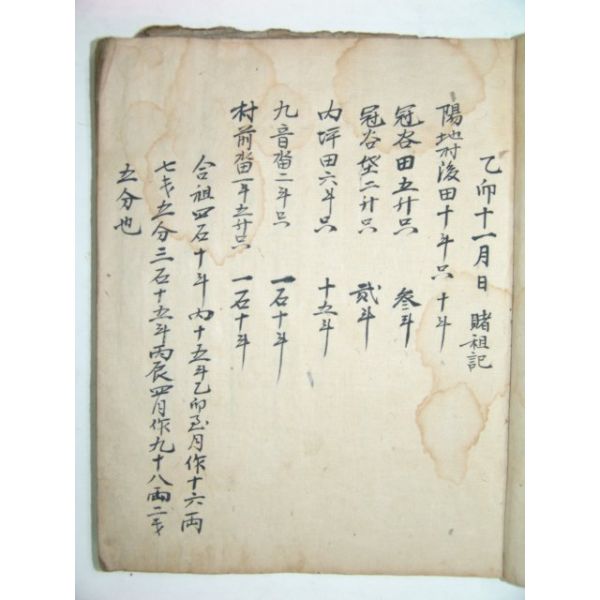 乙卯十一月日 賭租記
陽地村後田十斗只 十斗
冠谷田五升只 叄斗
冠谷垈二升只 貳斗
内坪田六斗只 十五斗
九音畓二斗只 一石十斗
村前畓一斗五升只 一石十斗
合租四石十斗内十五斗乙卯至月作十六兩
七戔五分三石十五斗丙辰四月作九十八兩二戔
五分也